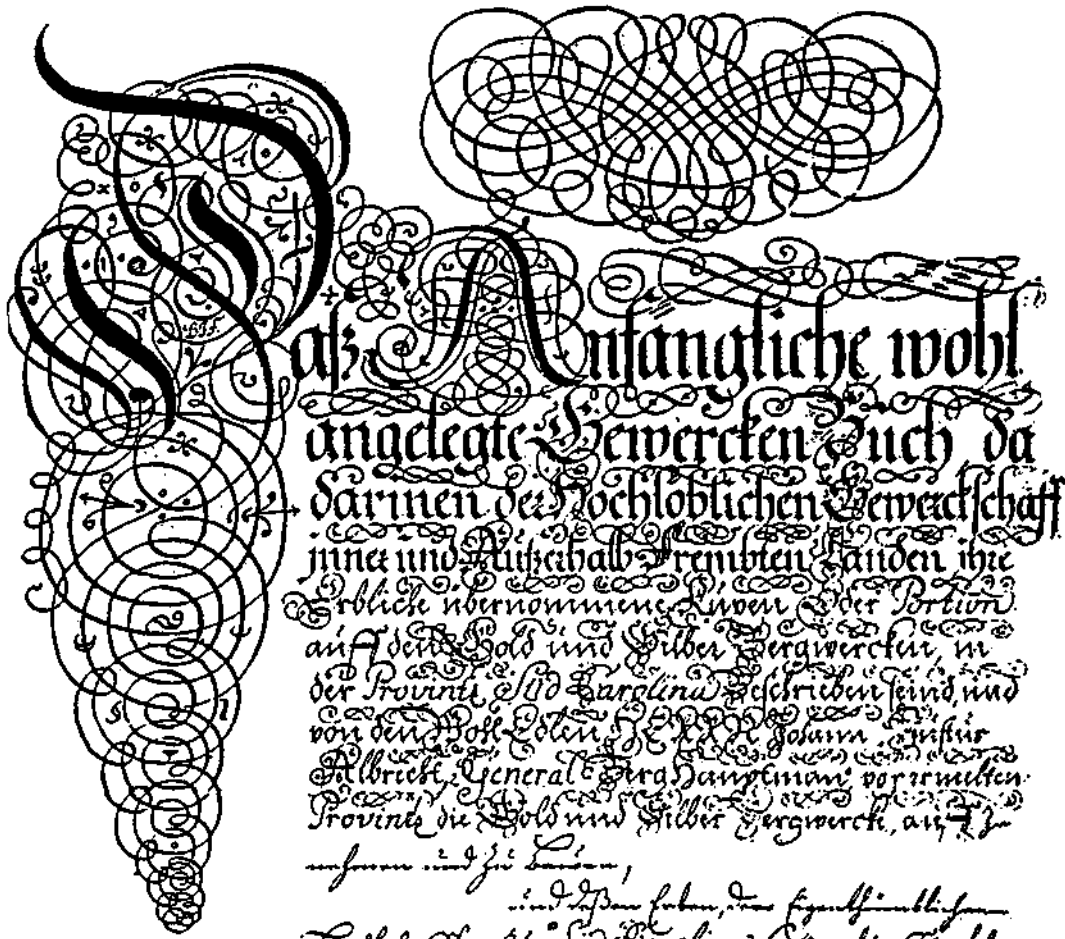 Daß Anfangliche wohl
angelegte Gewercken Buch da
darinen der Hochloblichen Gewerckschafft
inner und Außerhalb Frembten Landen ihre
Erbliche ubernommene Kuxen Oder Portion
auff den Gold und Silber Bergwercken, in
der Provintz Süd Carolina Beschrieben seind, und
von den Wohl Edlen, HERRN Johann
Albrecht, General Berg Hauptman vor ermelten
Provintz die Gold und Silber Bergwerck, auff Zu
nehmen und Zu Bauen,
und deßen Erben, den Eigenthumblichen